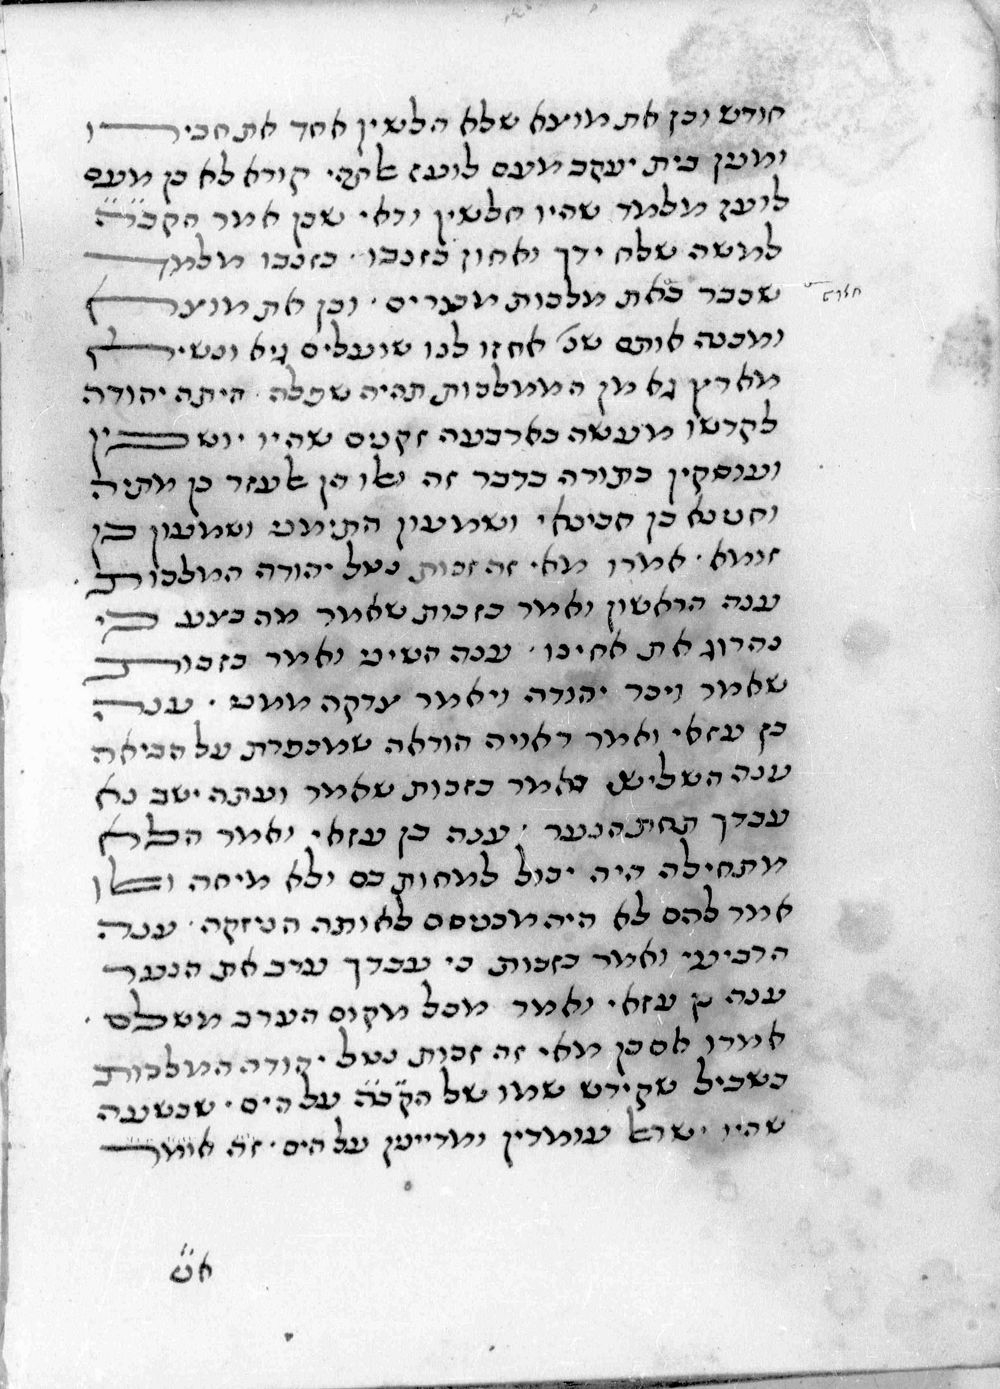 חודש וכן את מוצא שלא הלשין אחד את חבירו
ומנין בית יעקב מעם לועז אלהי קורא לא כן מעם
לועז מלמד שהיו חלשין ודאי שכן אמר הקב״ה
למשה שלח ידך ואחוז בזנבו · בזנבו מלמד
שכבר באת מלכות מצרים · וכן את מוצא
ומכנה אותם שנ׳ אחזו לנו שועלים גיא ונשיא
מארץ גא מן הממלכות תהיה שפלה · היתה יהודה
לקדשו מעשה בארבעה זקנים שהיו יושבין
ועוסקין בתורה בדבר זה ואלו הן אלעזר בן מתיה
וחנינא בן חכינאי ושמעון התימני ושמעון בן
זומא · אמרו מאי זה זכות נטל יהודה המלכות
ענה הראשון ואמר בזכות שאמר מה בצע כי
נהרוג את אחינו · ענה השיני ואמר בזכות
שאמר ויכר יהודה ויאמר צדקה ממני · ענה
בן עזאי ואמר דאויה הודאה שמכפרת על הביאה
ענה השלישי ואמר בזכות שאמר ועתה ישב נא
עבדך תחת הנער · ענה בן עזאי ואמר הלא
מתחילה היה יכול למחות בם ולא מיחה ואלו
אמר להם לא היה מכנסם לאותה הניזקה · ענה
הרביעי ואמר בזכות כי עבדך ערב את הנער
ענה בן עזאי ואמר מכל מקום הערב משלם ·
אמרו אם כן מאי זה זכות נטל יהודה המלכות
בשביל שקידש שמו של הקב״ה על הים · שבשעה
שהיו ישראל עומדין ומדיינין על הים · זה אומר
אני